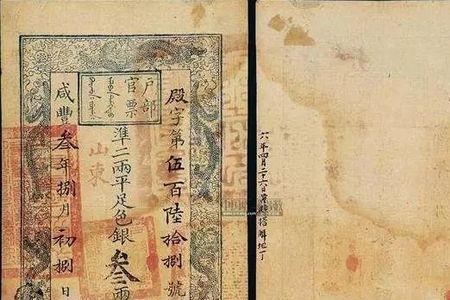 殿字第伍百陸拾捌號
户部
官票
準二兩平足色銀叁兩
山東
咸豐叁年捌月初捌日
六年四月二十六日
搭解地丁